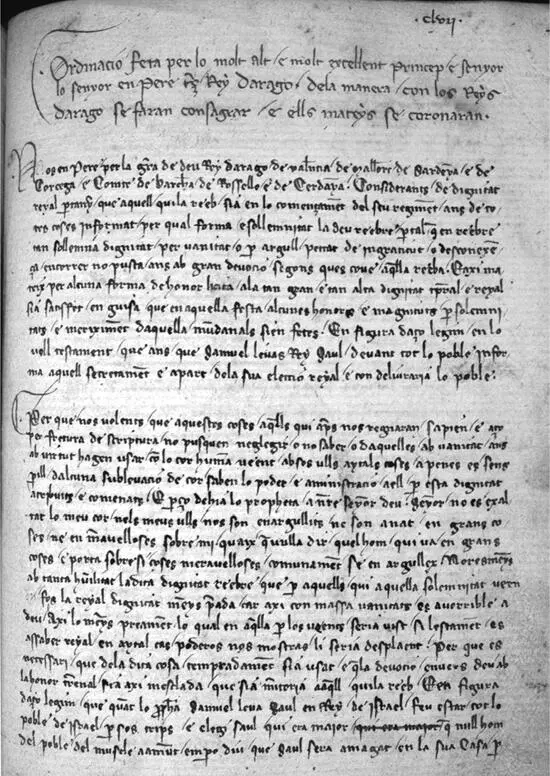 ·clvii·
Ordinacio feta per lo molt alt e molt excellent princep e senyor
lo senyor en Pere terç Rey darago · dela manera con los Reys
darago se faran consagrar e ells mateys se coronaran ·
Nos en Pere per la gra de deu Rey darago de valencia de Mallorc de Sardenya e de
Corcega e Comte de Barchna de Rossello e de Cerdanya · Considerants de dignitat
reyal que aquell qui la reeb sia en lo començament del seu regiment ans de to
tes coses informat per qual forma e sollemnitat la deu reebre per tal quen reebre
tan sollemna dignitat per vanitat o per argull peccat de ingratitut o desconexen
ça encorrer no pusca ans ab gran devocio segons ques cove aqlla reeba · E axi ma
teix per alguna forma de honor licita ala tan gran e tan alta dignitat tpral e reyal
sia satisfet en guisa que en aquella festa alcunes honors e magnituts per solemni
tats e mereximent daquella mudanals sien fetes · En figura daço legim en lo
vell testament que ans que Samuel levas Rey Saul devant tot lo poble infor
ma aquell secretament e apart dela sua eleccio reyal e con deliuraria lo poble ·
Per que nos volents que aquestes coses aqlls qui apres nos regnaran sapien e aço
per fretura de scriptura no pusquen neglegir o no saber o daquelles ab vanitat ans
ab virtut hagen usar com lo cor huma veent ab sos ulls aytals coses a penes es sens
perill dalcuna sublevacio de cor saben lo poder e aministracio aell per esta dignitat
atribuits e comenats · E per ço dehia lo propheta a nre senyor deu · Senyor no es exal
tat lo meu cor nels meus ulls nos son enargullits ne son anat en grans co
ses ne en maravelloses sobre mi quaix que vulla dir quel hom qui va en grans
coses e porta sobre si coses meravelloses comunament se en argullex Moresmenys
ab tanta humilitat la dita dignitat reebre que per aquells qui aquella solemnitat veen
fos la reyal dignitat menys preada car axi con massa vanitats es avorrible a
deu Axi lo menys preament lo qual en aqlla per los veents seria vist si lestament es
assaber reyal en aytal cas poderos nos mostras li seria desplaent · Per que es
necessari que dela dita cosa tempradament sia usat e qla devocio envers deu ab
la honor terrenal sia axi mesclada que sia meritoria aaqll qui la reeb · En figura
daço legim que quant lo propheta Samuel leva Saul en Rey de israel feu estar tot lo
poble de israel per sos trips e elegi Saul qui era maior qui era maior q null hom
del poble del muscle aamunt empero diu que Saul sera amagat en la sua casa per